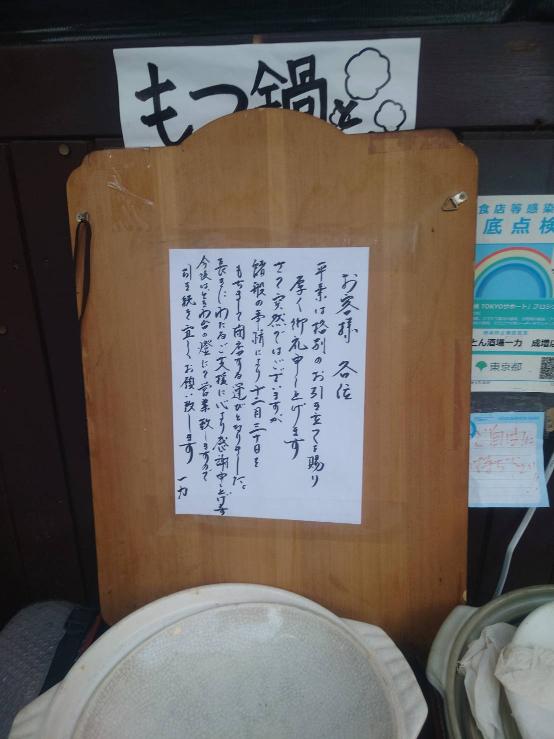 もつ鍋
お客様 各位
平素は格別のお引き立てを賜り
厚く御礼申し上げます
さて突然ではございますが
諸般の事情により十二月三十日を
もちまして閉店する運びとなりました。
長きにわたるご支援に心より感謝申し上げます
今後はときわ台の燈にて営業致しますので
引き続き宜しくお願い致します
一力
食店等感染
底点検
TOKYOサポート
とん酒場一力 成増店
東京都
ご自由に